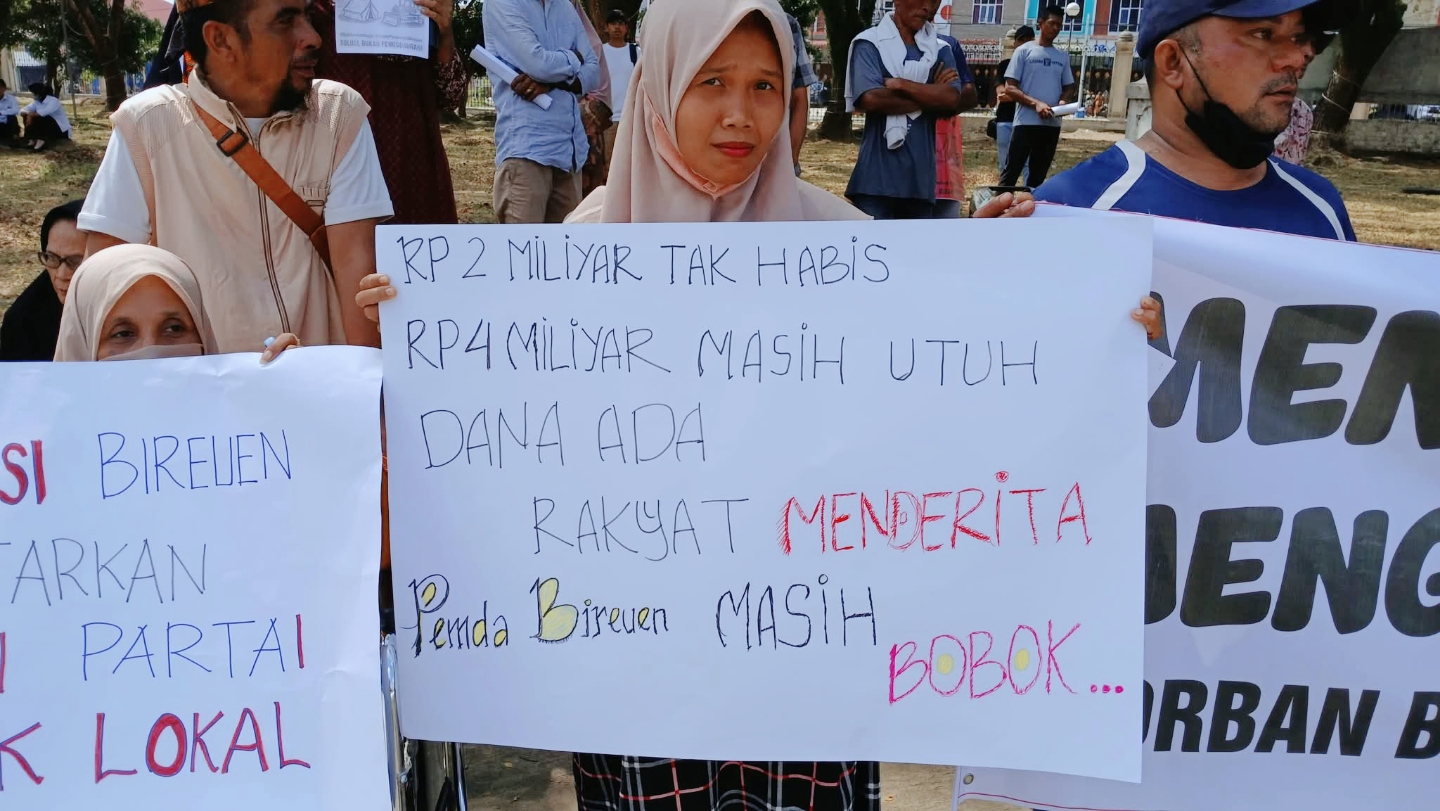 RP 2 MILIYAR TAK HABIS
RP4 MILIYAR MASIH UTUH
DANA ADA
RAKYAT MENDERITA
Pemda Bireuen MASIH
BOBOK...
SI BIREUEN
TARKAN
PARTAI
K LOKAL
MEN
ENG
ORBAN B